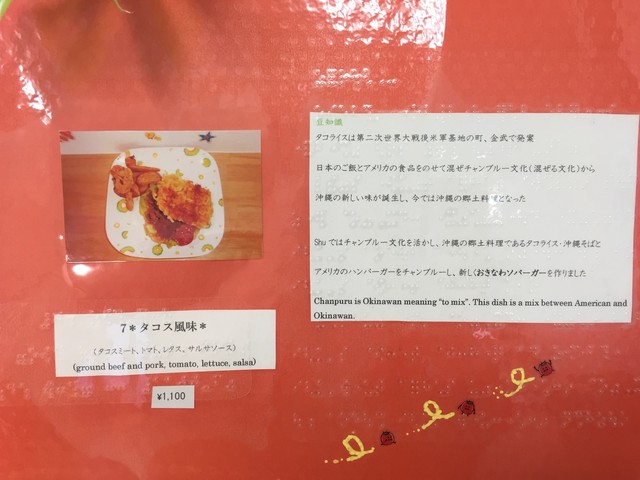 豆知識
タコライスは第二次世界大戦後米軍基地の町、金武で発案
日本のご飯とアメリカの食品をのせて混ぜチャンプルー文化(混ぜる文化)から
沖縄の新しい味が誕生し、今では沖縄の郷土料理となった
Shuではチャンプルー文化を活かし、沖縄の郷土料理であるタコライス・沖縄そばと
アメリカのハンバーガーをチャンプルーし、新しくおきなわソバーガーを作りました
Chanpuru is Okinawan meaning "to mix". This dish is a mix between American and
Okinawan.
7*タコス風味*
(タコスミート、トマト、レタス、サルサソース)
(ground beef and pork, tomato, lettuce, salsa)
¥1,100